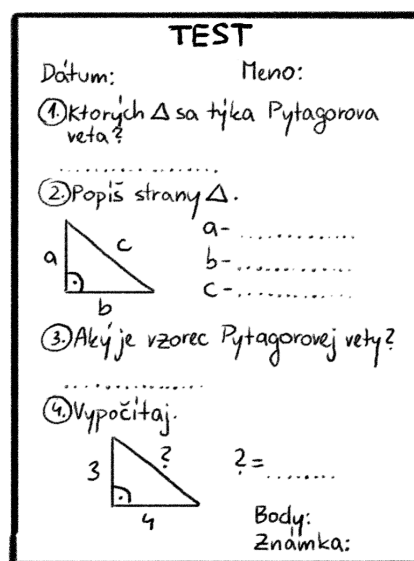 TEST
Dátum: Meno:
1. Ktorých Δ sa týka Pytagorova
veta?
....................
2. Popíš strany Δ.
a c b
a- ................
b- ................
c- ................
3. Aký je vzorec Pytagorovej vety?
....................
4. Vypočítaj.
3 ? 4
? = ........
Body:
Známka: